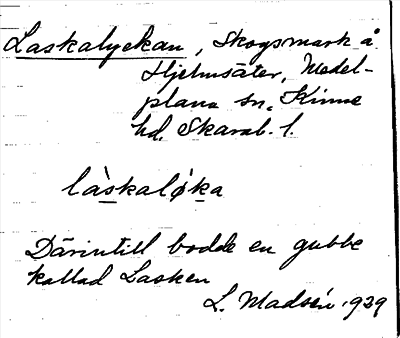 Laskalyckan, Skogsmark å
Hjelmsäter, Medel-
plana sn, Kinne
hd. Skarab. l.
làskaløka
Därintill bodde en gubbe
kallad Lasken
L. Madsén 1929